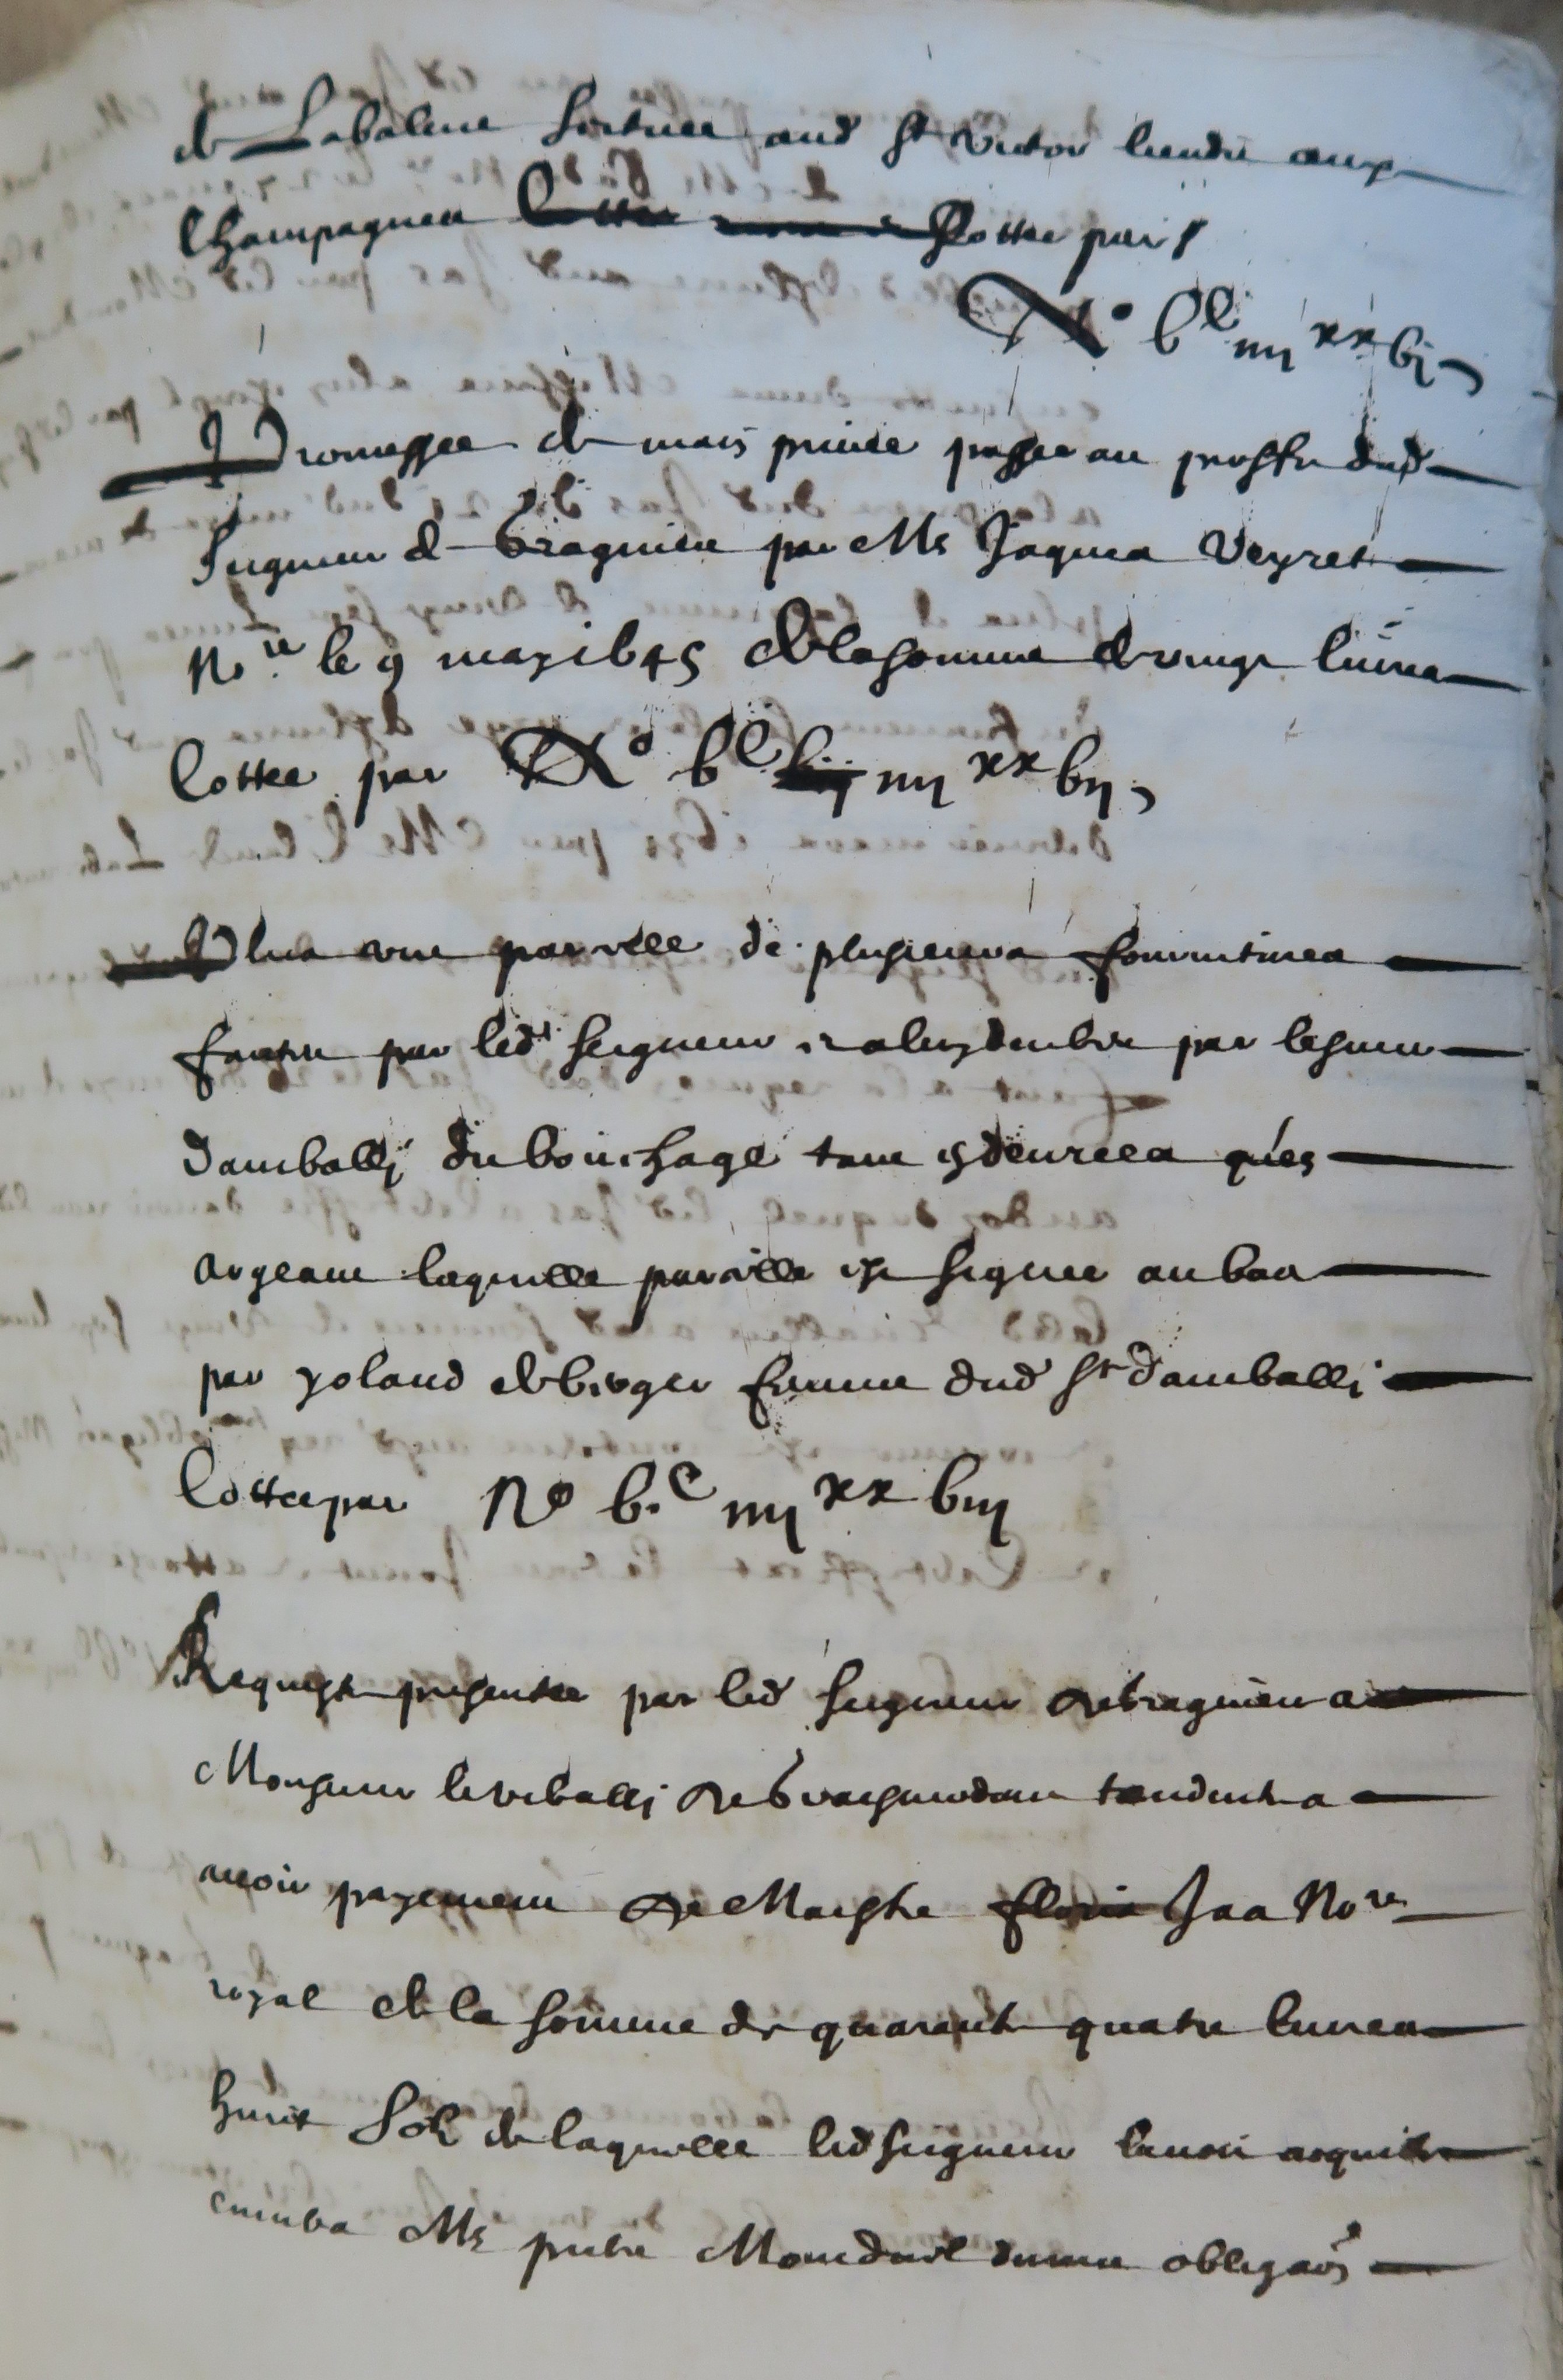 de Labalme scituee aud St Victor lieudit aux
Champagnes Cottee par
No bc iiii xx vi
Promesse de main privee passee au proffit dud
Seigneur de Bragnieu par Me Jaques Veyret
Nore le 9 may 1645 de la somme de vingt livres
Cottee par No bc iiii xx vii
Plus une parcelle de plusieurs fournitures
faictes par led seigneur et a luy deubve par le sieur
damballi du bouchage tant en denrees qu'en
argeant laquelle parcelle est signee au bas
par yoland de berger femme dud Sr damballi
Cottee par No b.c iiii xx viii
Requeste presentee par led seigneur de bragnieu a
Monsieur le vibally de tendente a
avoir payement de Maistre floris Jas Nore
royal de la somme de quarante quatre livres
huict solz de laquelle led seigneur l'avoit acquitte
envers Me Moinduel dune obligaon